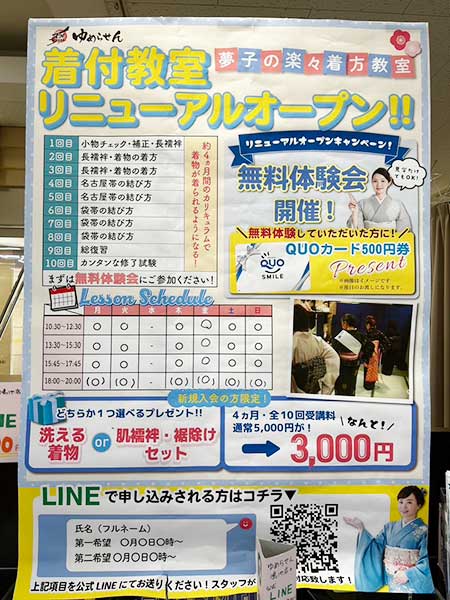 ゆめらせん
夢子の楽々着方教室
着付教室
リニューアルオープン!!
1回目 小物チェック・補正・長襦袢
2回目 長襦袢・着物の着方
3回目 長襦袢・着物の着方
4回目 名古屋帯の結び方
5回目 名古屋帯の結び方
6回目 袋帯の結び方
7回目 袋帯の結び方
8回目 袋帯の結び方
9回目 総復習
10回目 カンタンな修了試験
約4ヵ月間のカリキュラムで
着物が着られるようになる!
まずは無料体験会にご参加ください!
リニューアルオープンキャンペーン!
無料体験会
開催!
見学だけ
でもOK!
無料体験していただいた方に!
QUOカード500円券
Present
QUO
SMILE
※画像はイメージです
※後日のお渡しになります。
Lesson Schedule
月 火 水 木 金 土 日
10:30~12:30 ○ ○ - ○ ○ ○ ○
13:30~15:30 ○ ○ - ○ ○ ○ ○
15:45~17:45 ○ ○ - ○ ○ ○ ○
18:00~20:00 (○) (○) - (○) (○) (○) (○)
新規入会の方限定!
どちらか1つ選べるプレゼント!!
洗える
着物
or
肌襦袢・裾除け
セット
4ヵ月・全10回受講料
通常5,000円が!
なんと!
→3,000円
LINEで申し込みされる方はコチラ▼
氏名(フルネーム)
第一希望 ○月○日○時~
第二希望 ○月○日○時~
上記項目を公式LINEにてお送りください!スタッフが
対応致します!
ゆめらせん
LINE
LINE